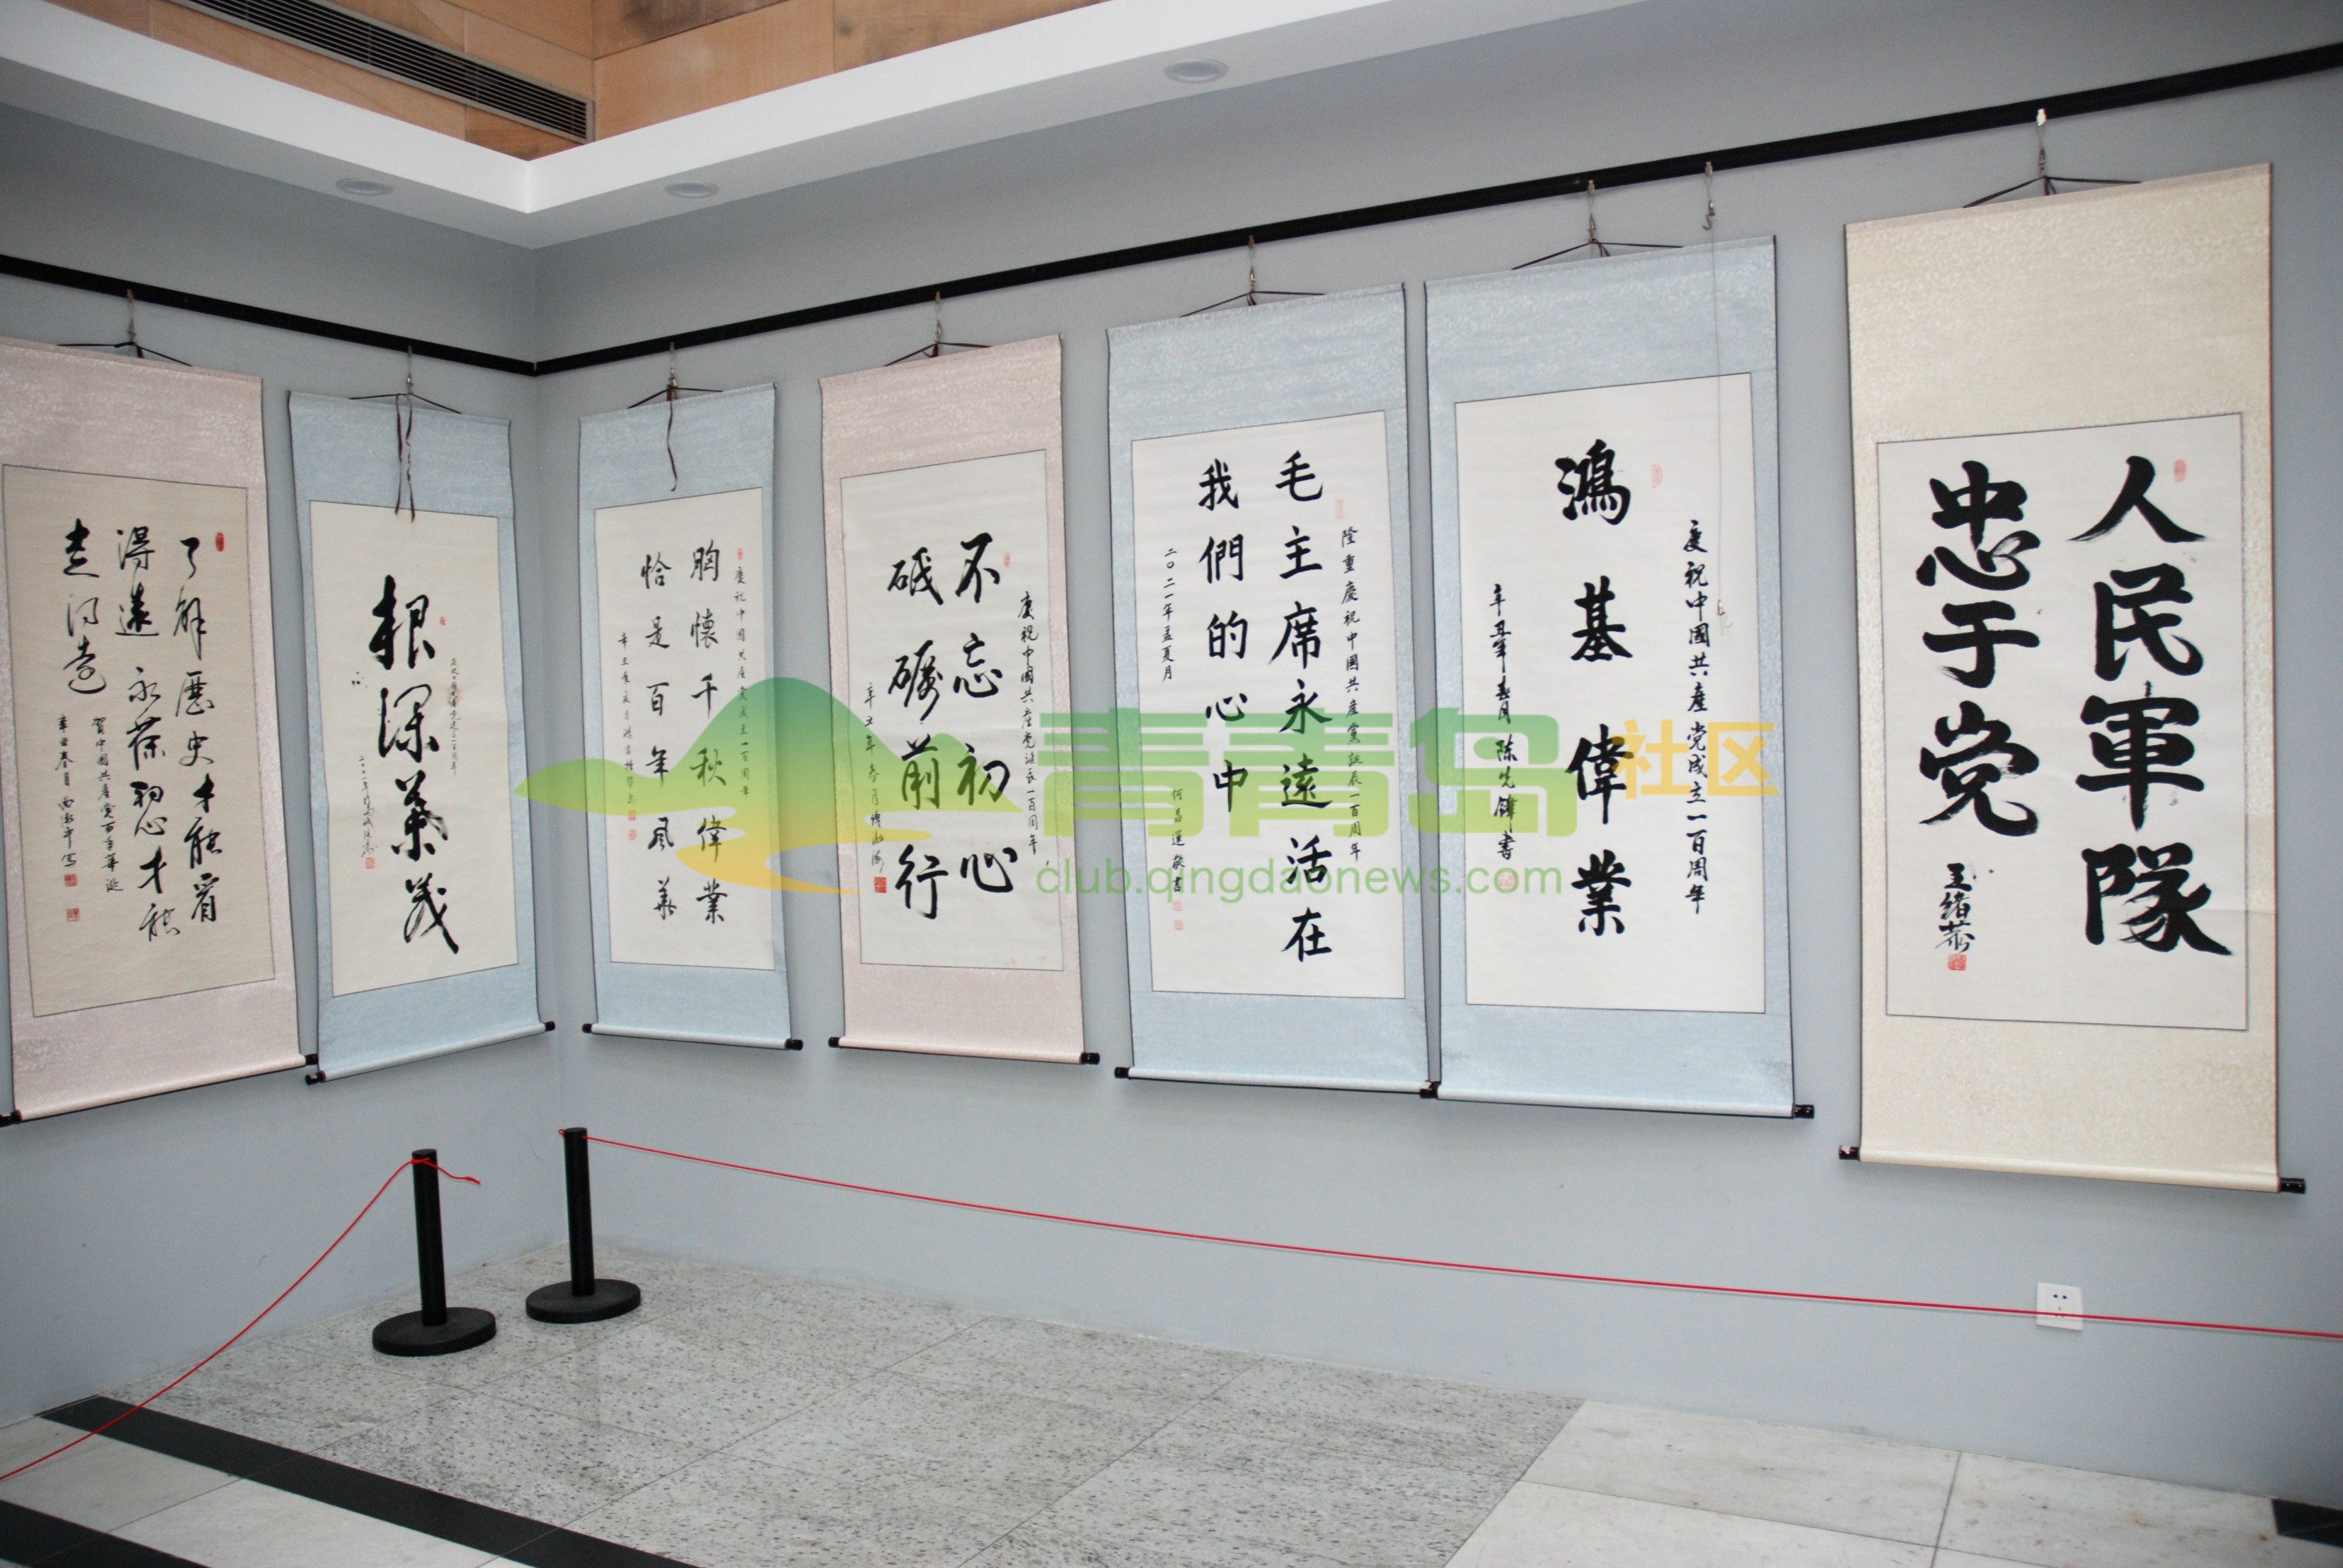 人民軍隊
忠于党
王緒恭
慶祝中國共產党成立一百周年
鴻基偉業
辛丑年春月 陈先鋒書
隆重慶祝中國共産黨誕辰一百周年
毛主席永遠活在
我們的心中
二〇二一年孟夏月
何昌運敬書
慶祝中國共產党誕辰一百周年
不忘初心
砥礪前行
辛丑年春月
慶祝中國共產党成立一百周年
胸懷千秋偉業
恰是百年風華
根深葉茂
了解歷史才能看
得遠 永葆初心才能
走得遠
賀中國共產党百年華诞
辛丑春月
青青岛社区
club.qingdaonews.com